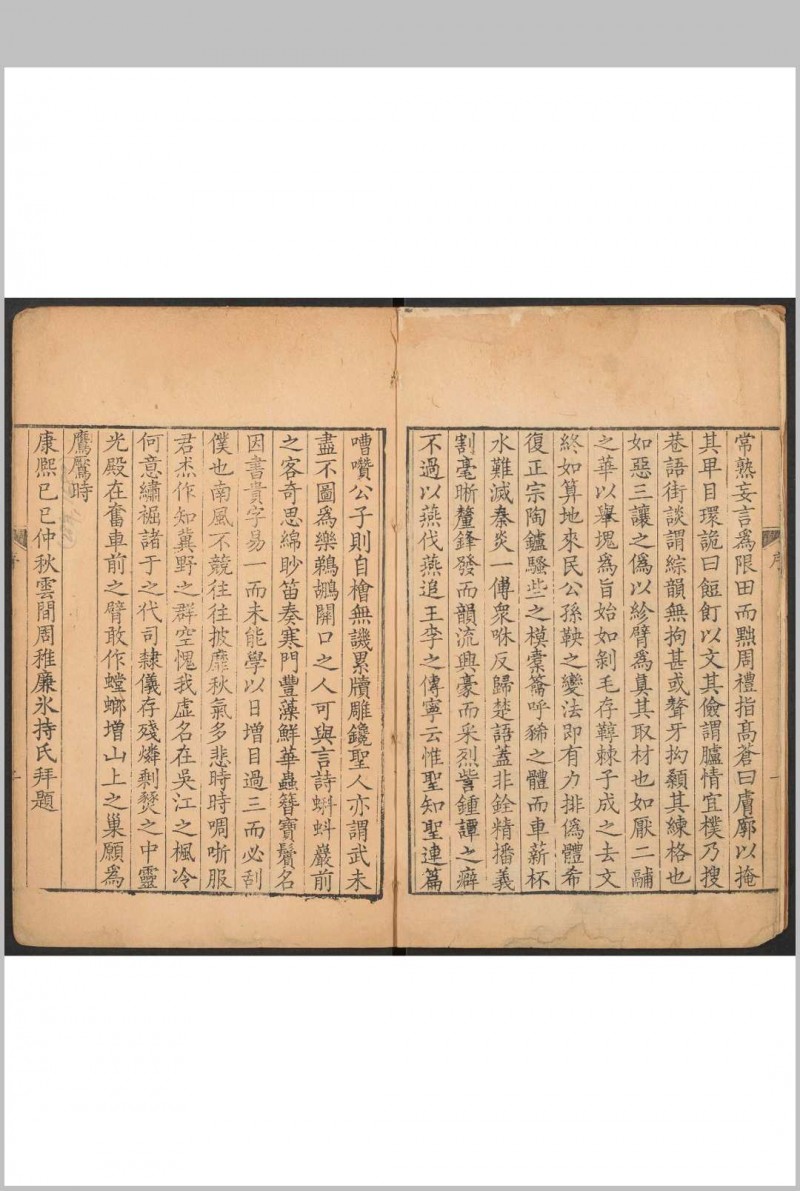 常熟妄言為限田而黜周禮指高蒼曰膚廓以掩
其卑目環詭曰餖飣以文其儉謂臚情宜樸乃搜
巷語街談謂綜韻無拘甚或聱牙拗顙其練格也
如惡三讓之偽以紾臂為真其取材也如厭二酺
之華以舉塊為旨始如剝毛存鞟棘子成之去文
終如算地來民公孫鞅之變法即有力排偽體希
復正宗陶鑪騷些之模橐籥呼豨之體而車薪杯
水難滅秦炎一傅眾咻反歸楚語蓋非銓精播義
割毫晰釐鋒發而韻流興豪而采烈訾鍾譚之癖
不過以燕伐燕追王李之傳寧云惟聖知聖連篇
嘈囋公子則自檜無譏累牘雕鑱聖人亦謂武未
盡不圖為樂鵜鶘開口之人可與言詩蝌蚪巖前
之客奇思綿眇笛奏寒門豐藻鮮華蟲簪寶鬢名
因書貴字易一而未能學以日增目過三而必刮
僕也南風不競往往披靡秋氣多悲時時啁哳服
君杰作知冀野之群空愧我虛名在吳江之楓冷
何意繡裾諸于之代司隸儀存殘燐剩燹之中靈
光殿在奮車前之臂敢作螳螂增山上之巢願為
鷹鸇時
康熙己巳仲秋雲間周稚廉氷持氏拜題
序
一
序